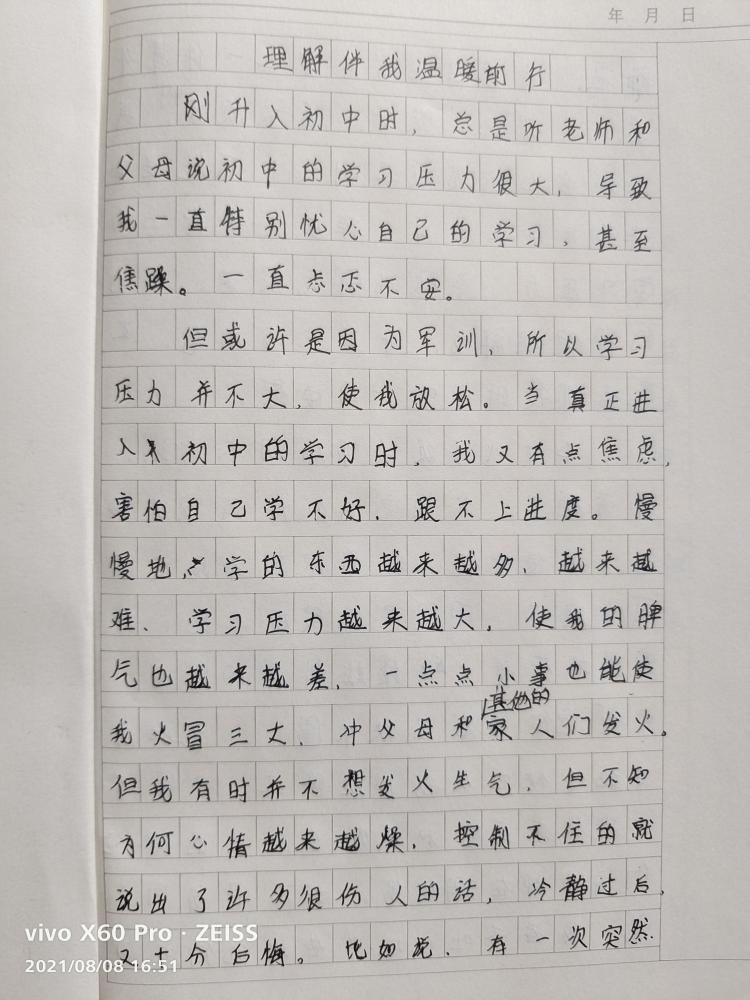 年 月 日
理解伴我温暖前行
刚升入初中时，总是听老师和
父母说初中的学习压力很大，导致
我一直特别忧心自己的学习，甚至
焦躁。一直忐忑不安。
但或许是因为军训，所以学习
压力并不大，使我放松。当真正进
入初中的学习时，我又有点焦虑，
害怕自己学不好，跟不上进度。慢
慢地，学的东西越来越多，越来越
难、学习压力越来越大，使我的脾
气也越来越差，一点点小事也能使
其他的
我火冒三丈，冲父母和家人们发火。
但我有时并不想发火生气，但不知
为何心情越来越燥，控制不住的就
说出了许多很伤人的话，冷静过后，
又十分后悔。比如说，有一次突然
vivo X60 Pro · ZEISS
2021/08/08 16:51